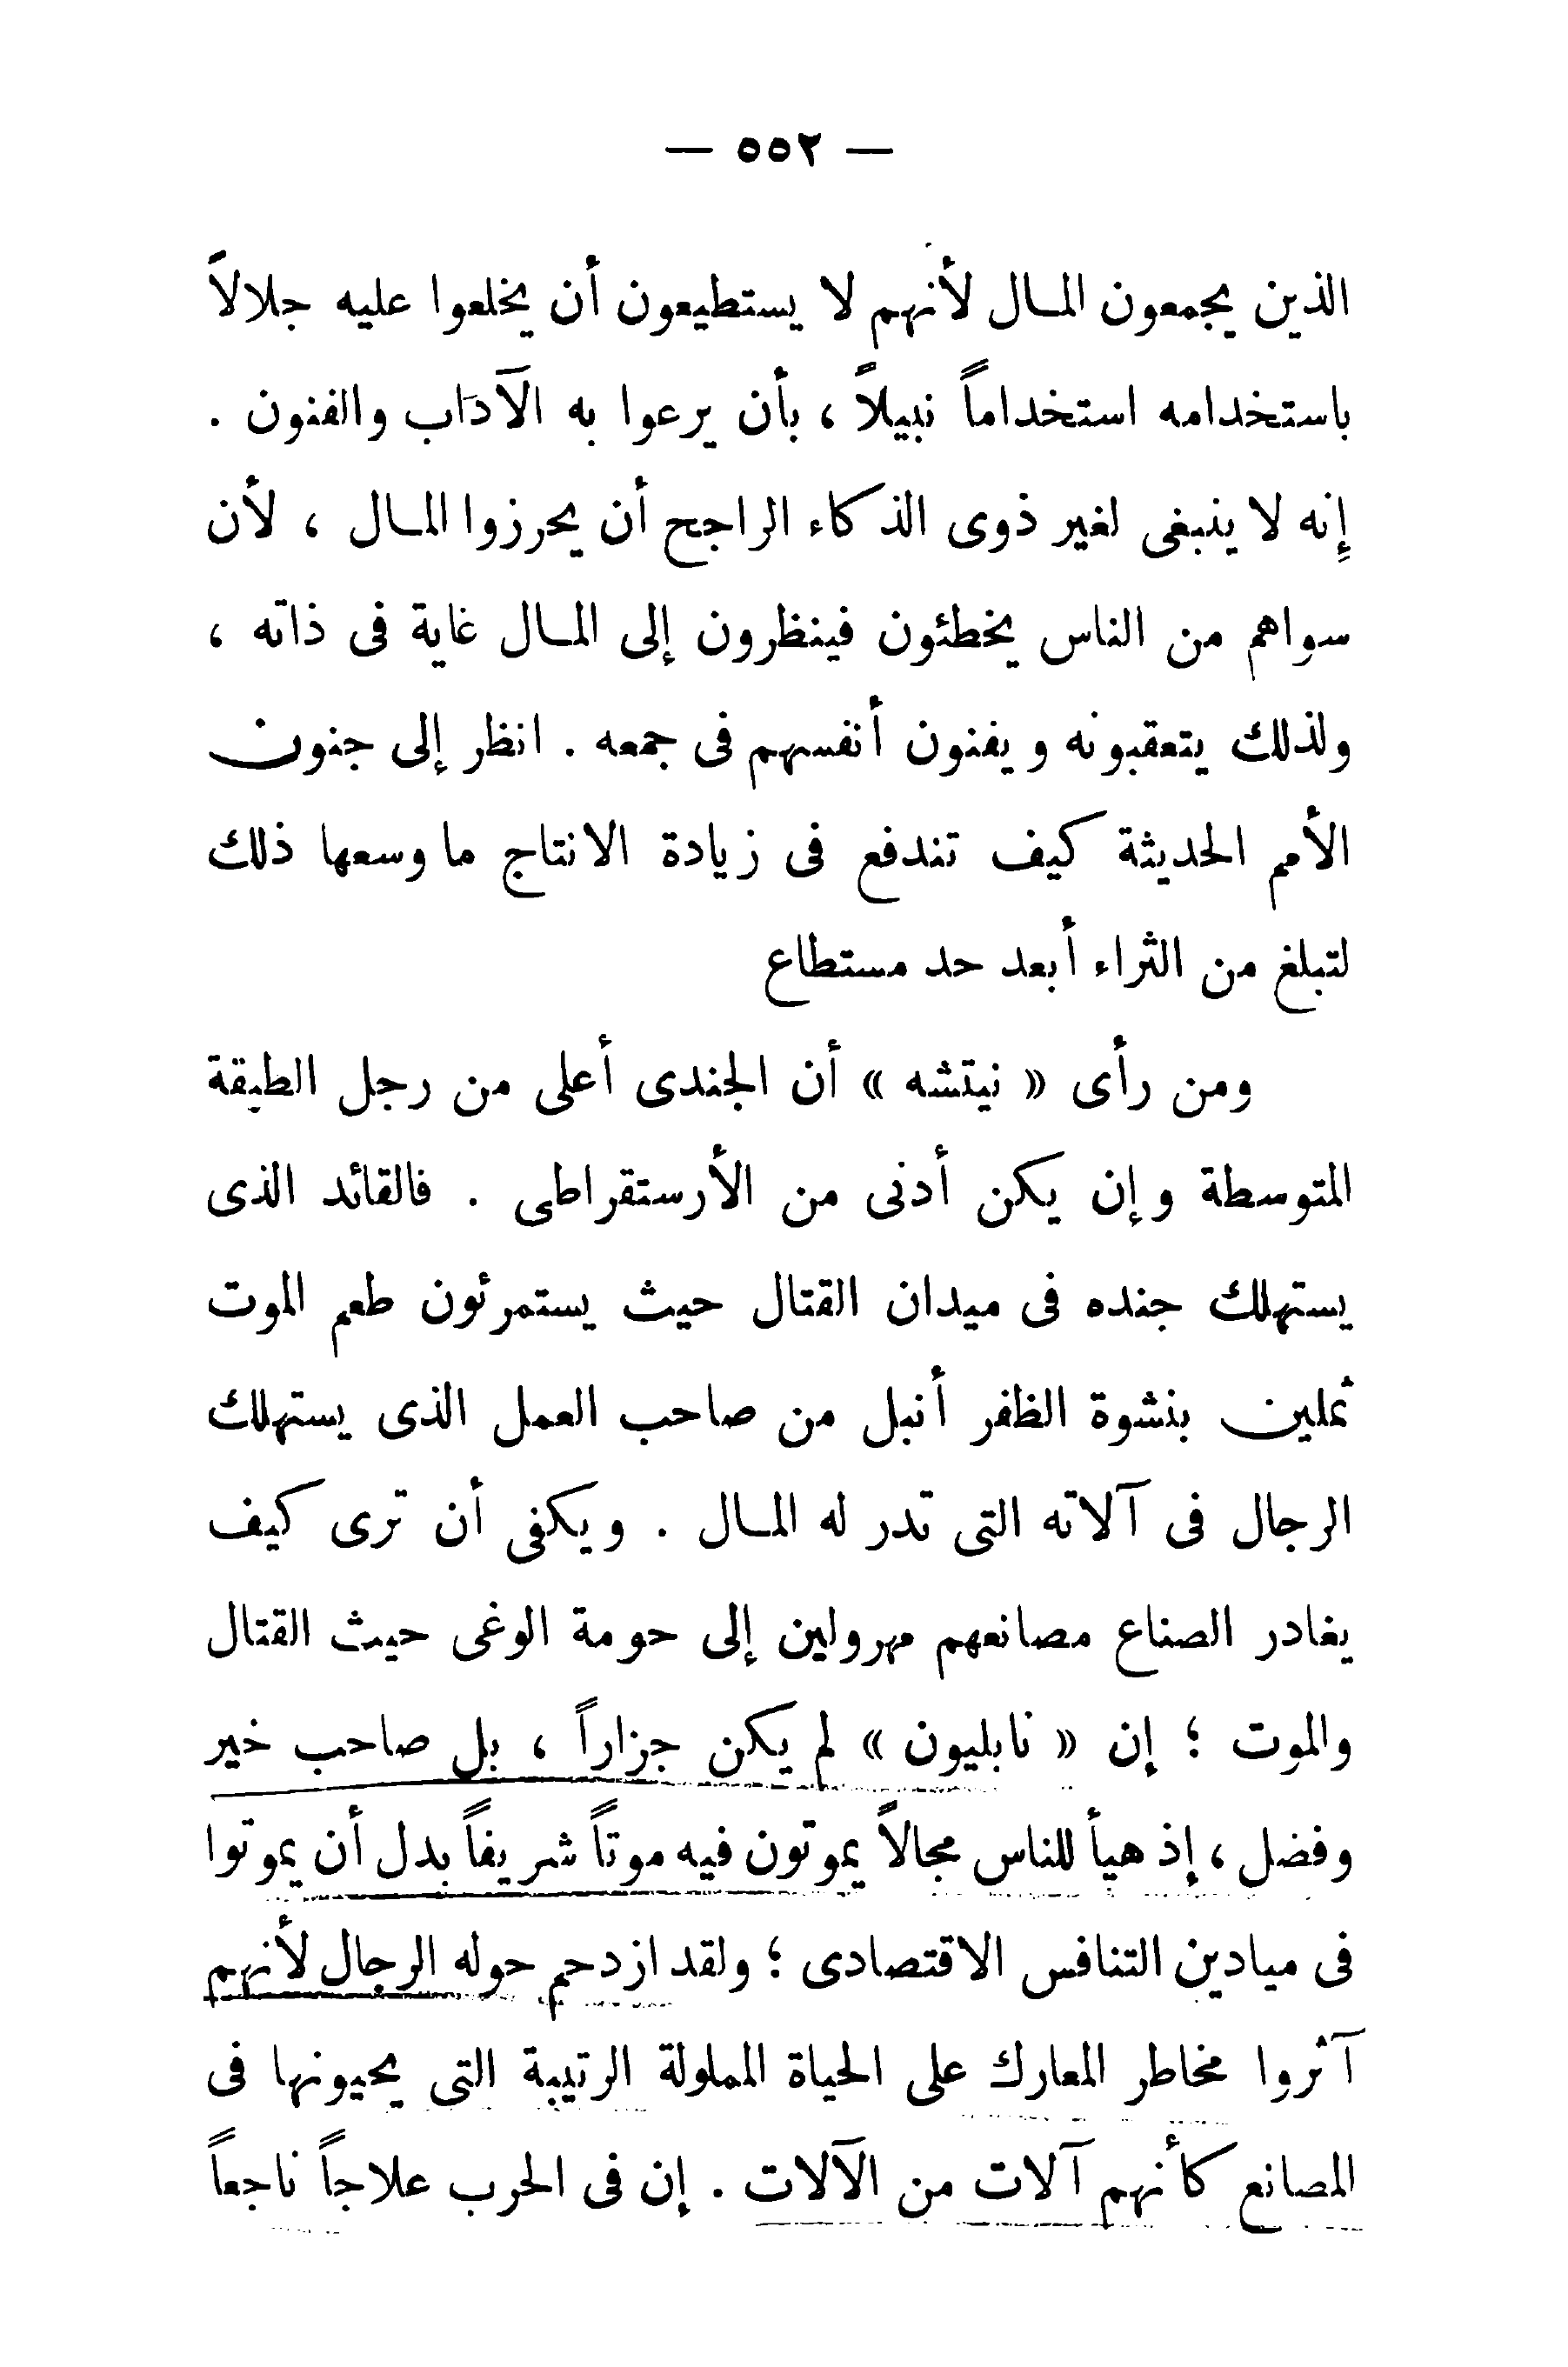 — ٥٥٢ —
الذين يجمعون المـال لأنهم لا يستطيعون أن يخلعوا عليه جلالاً
باستخدامه استخداماً نبيلاً ، بأن يرعوا به الآداب والفنون .
إنه لا ينبغى لغير ذوى الذكاء الراجح أن يحرزوا المـال ، لأن
سواهم من الناس يخطئون فينظرون إلى المـال غاية فى ذاته ،
ولذلك يتعقبونه ويفنون أنفسهم فى جمعه . انظر إلى جنون
الأمم الحديثة كيف تندفع فى زيادة الانتاج ما وسعها ذلك
لتبلغ من الثراء أبعد حد مستطاع
ومن رأى « نيتشه » أن الجندى أعلى من رجل الطبقة
المتوسطة وإن يكن أدنى من الأرستقراطى . فالقائد الذى
يستهلك جنده فى ميدان القتال حيث يستمرئون طعم الموت
ثملين بنشوة الظفر أنبل من صاحب العمل الذى يستهلك
الرجال فى آلاته التى تدر له المـال . ويكفى أن ترى كيف
يغادر الصناع مصانعهم مهرولين إلى حومة الوغى حيث القتال
والموت ؛ إن « نابليون » لم يكن جزاراً ، بل صاحب خير
وفضل ، إذ هيأ للناس مجالاً يموتون فيه موتاً شريفاً بدل أن يموتوا
فى ميادين التنافس الاقتصادى ؛ ولقد ازدحم حوله الرجال لأنهم
آثروا مخاطر المعارك على الحياة المملولة الرتيبة التى يحيونها فى
المصانع كأنهم آلات من الآلات . إن فى الحرب علاجاً ناجعاً